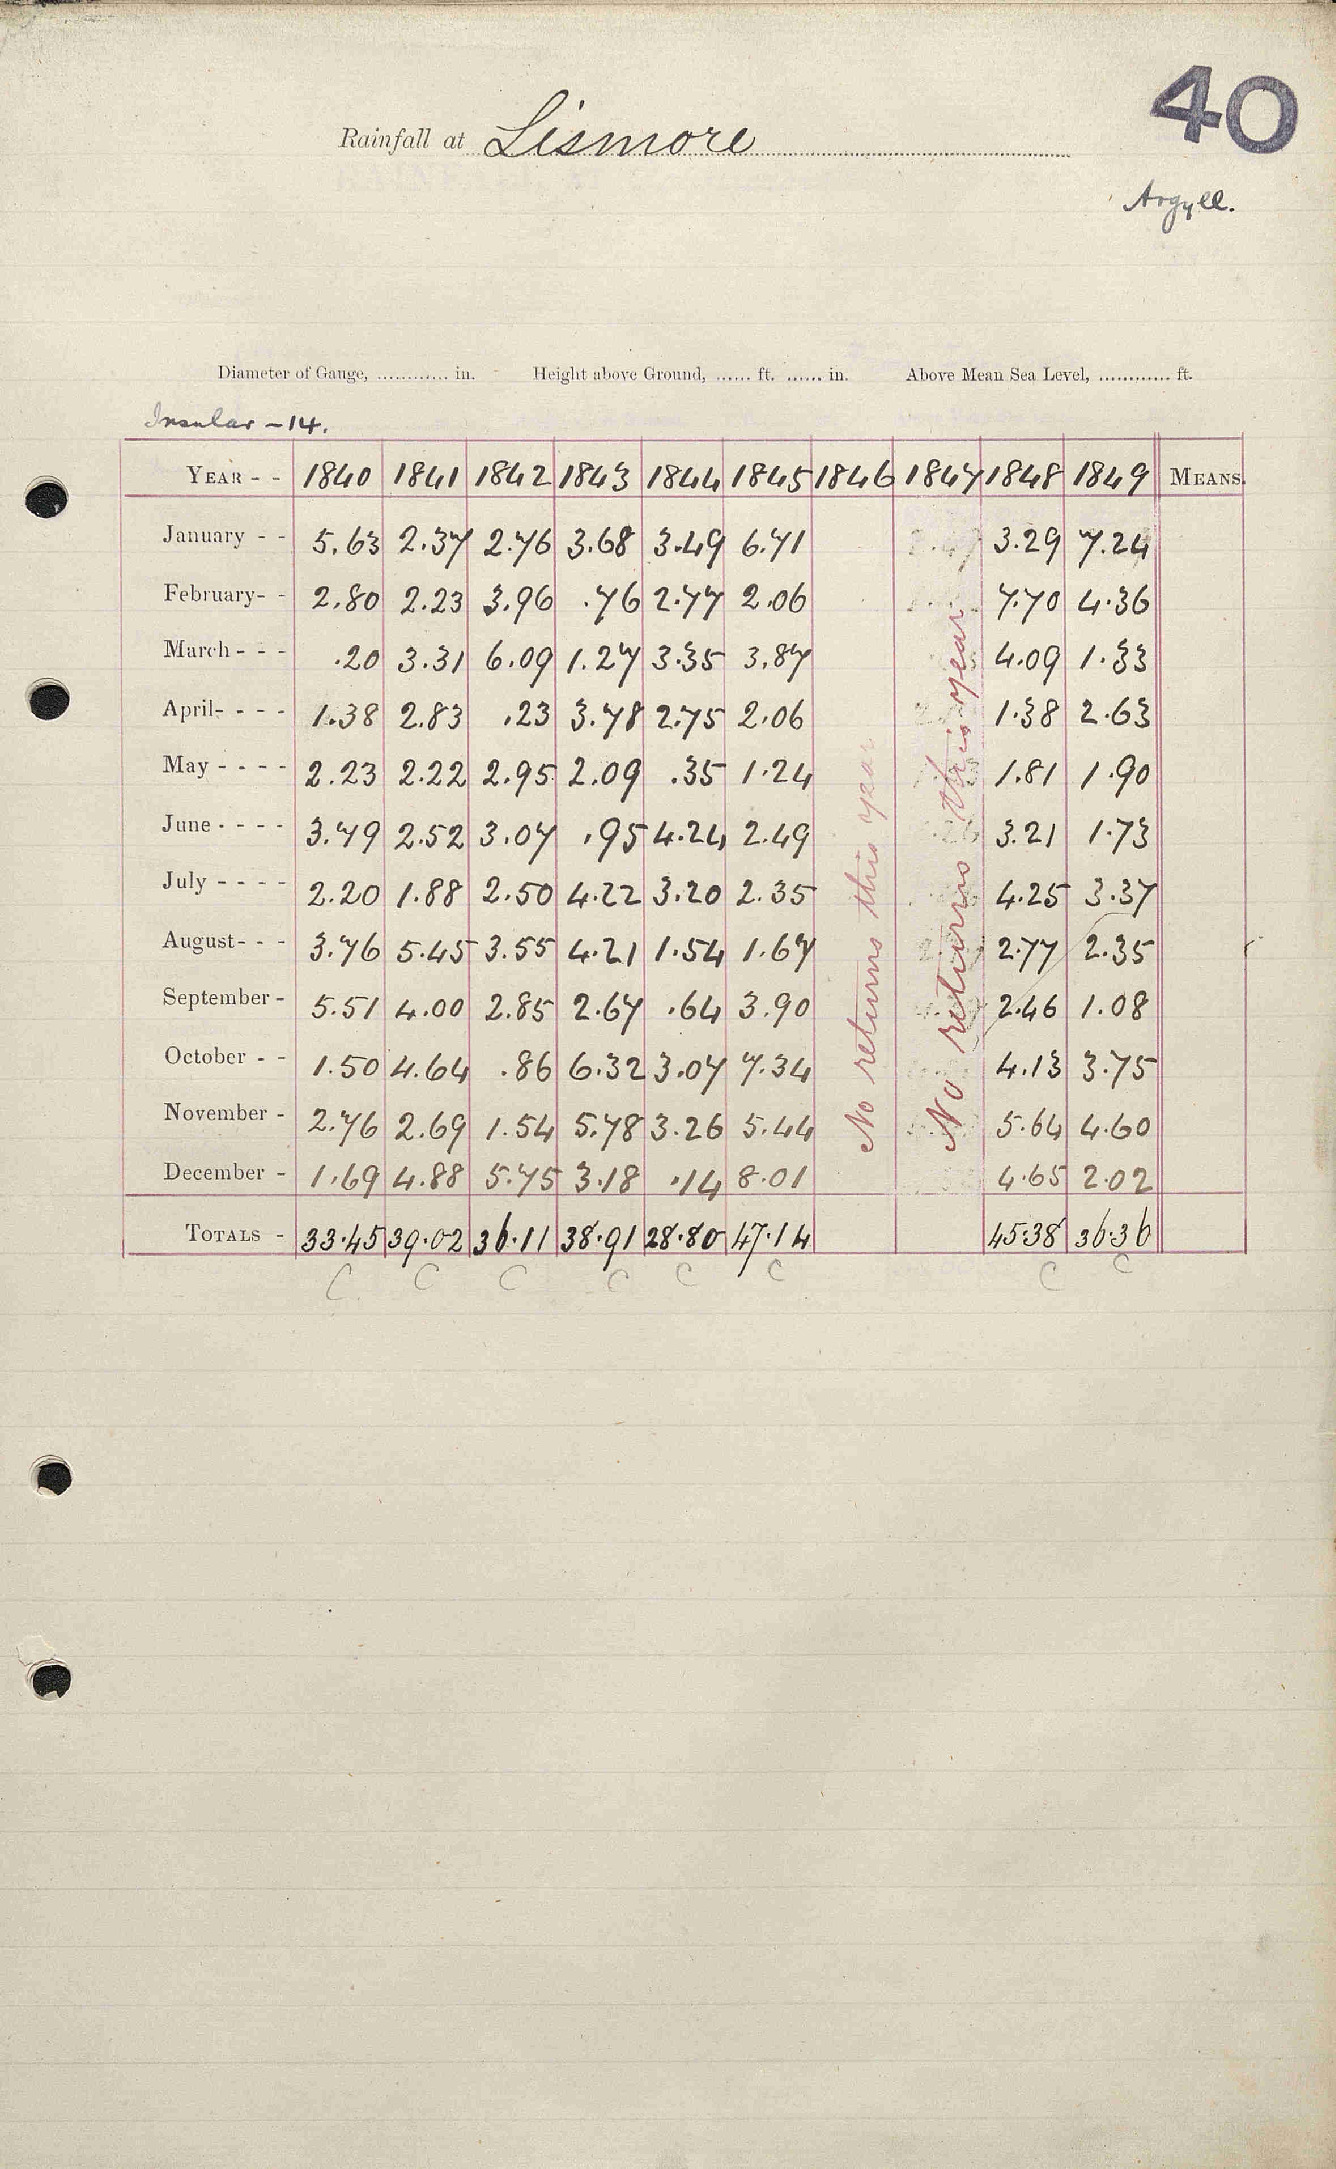 40
Rainfall at Lismore
Argyll.
Diameter of Gauge, ............ in. Height above Ground, ...... ft. ...... in. Above Mean Sea Level, ............ ft.
Insular - 14.
YEAR - - 1840 1841 1842 1843 1844 1845 1846 1847 1848 1849 MEANS.
January - - 5.63 2.37 2.76 3.68 3.49 6.71 3.29 7.24
February- - 2.80 2.23 3.96 .76 2.77 2.06 7.70 4.36
March - - - .20 3.31 6.09 1.27 3.35 3.87 4.09 1.33
April- - - - 1.38 2.83 .23 3.78 2.75 2.06 1.38 2.63
May - - - - 2.23 2.22 2.95 2.09 .35 1.24 1.81 1.90
June - - - - 3.79 2.52 3.07 .95 4.24 2.49 3.21 1.73
July - - - - 2.20 1.88 2.50 4.22 3.20 2.35 4.25 3.37
August- - - 3.76 5.45 3.55 4.21 1.54 1.67 2.77 2.35
September - 5.51 4.00 2.85 2.67 .64 3.90 2.46 1.08
October - - 1.50 4.64 .86 6.32 3.07 7.34 4.13 3.75
November - 2.76 2.69 1.54 5.78 3.26 5.44 5.64 4.60
December - 1.69 4.88 5.75 3.18 .14 8.01 4.65 2.02
No returns this year
No returns this year
TOTALS - 33.45 39.02 36.11 38.91 28.80 47.14 45.38 36.36
C. C C C C C C C